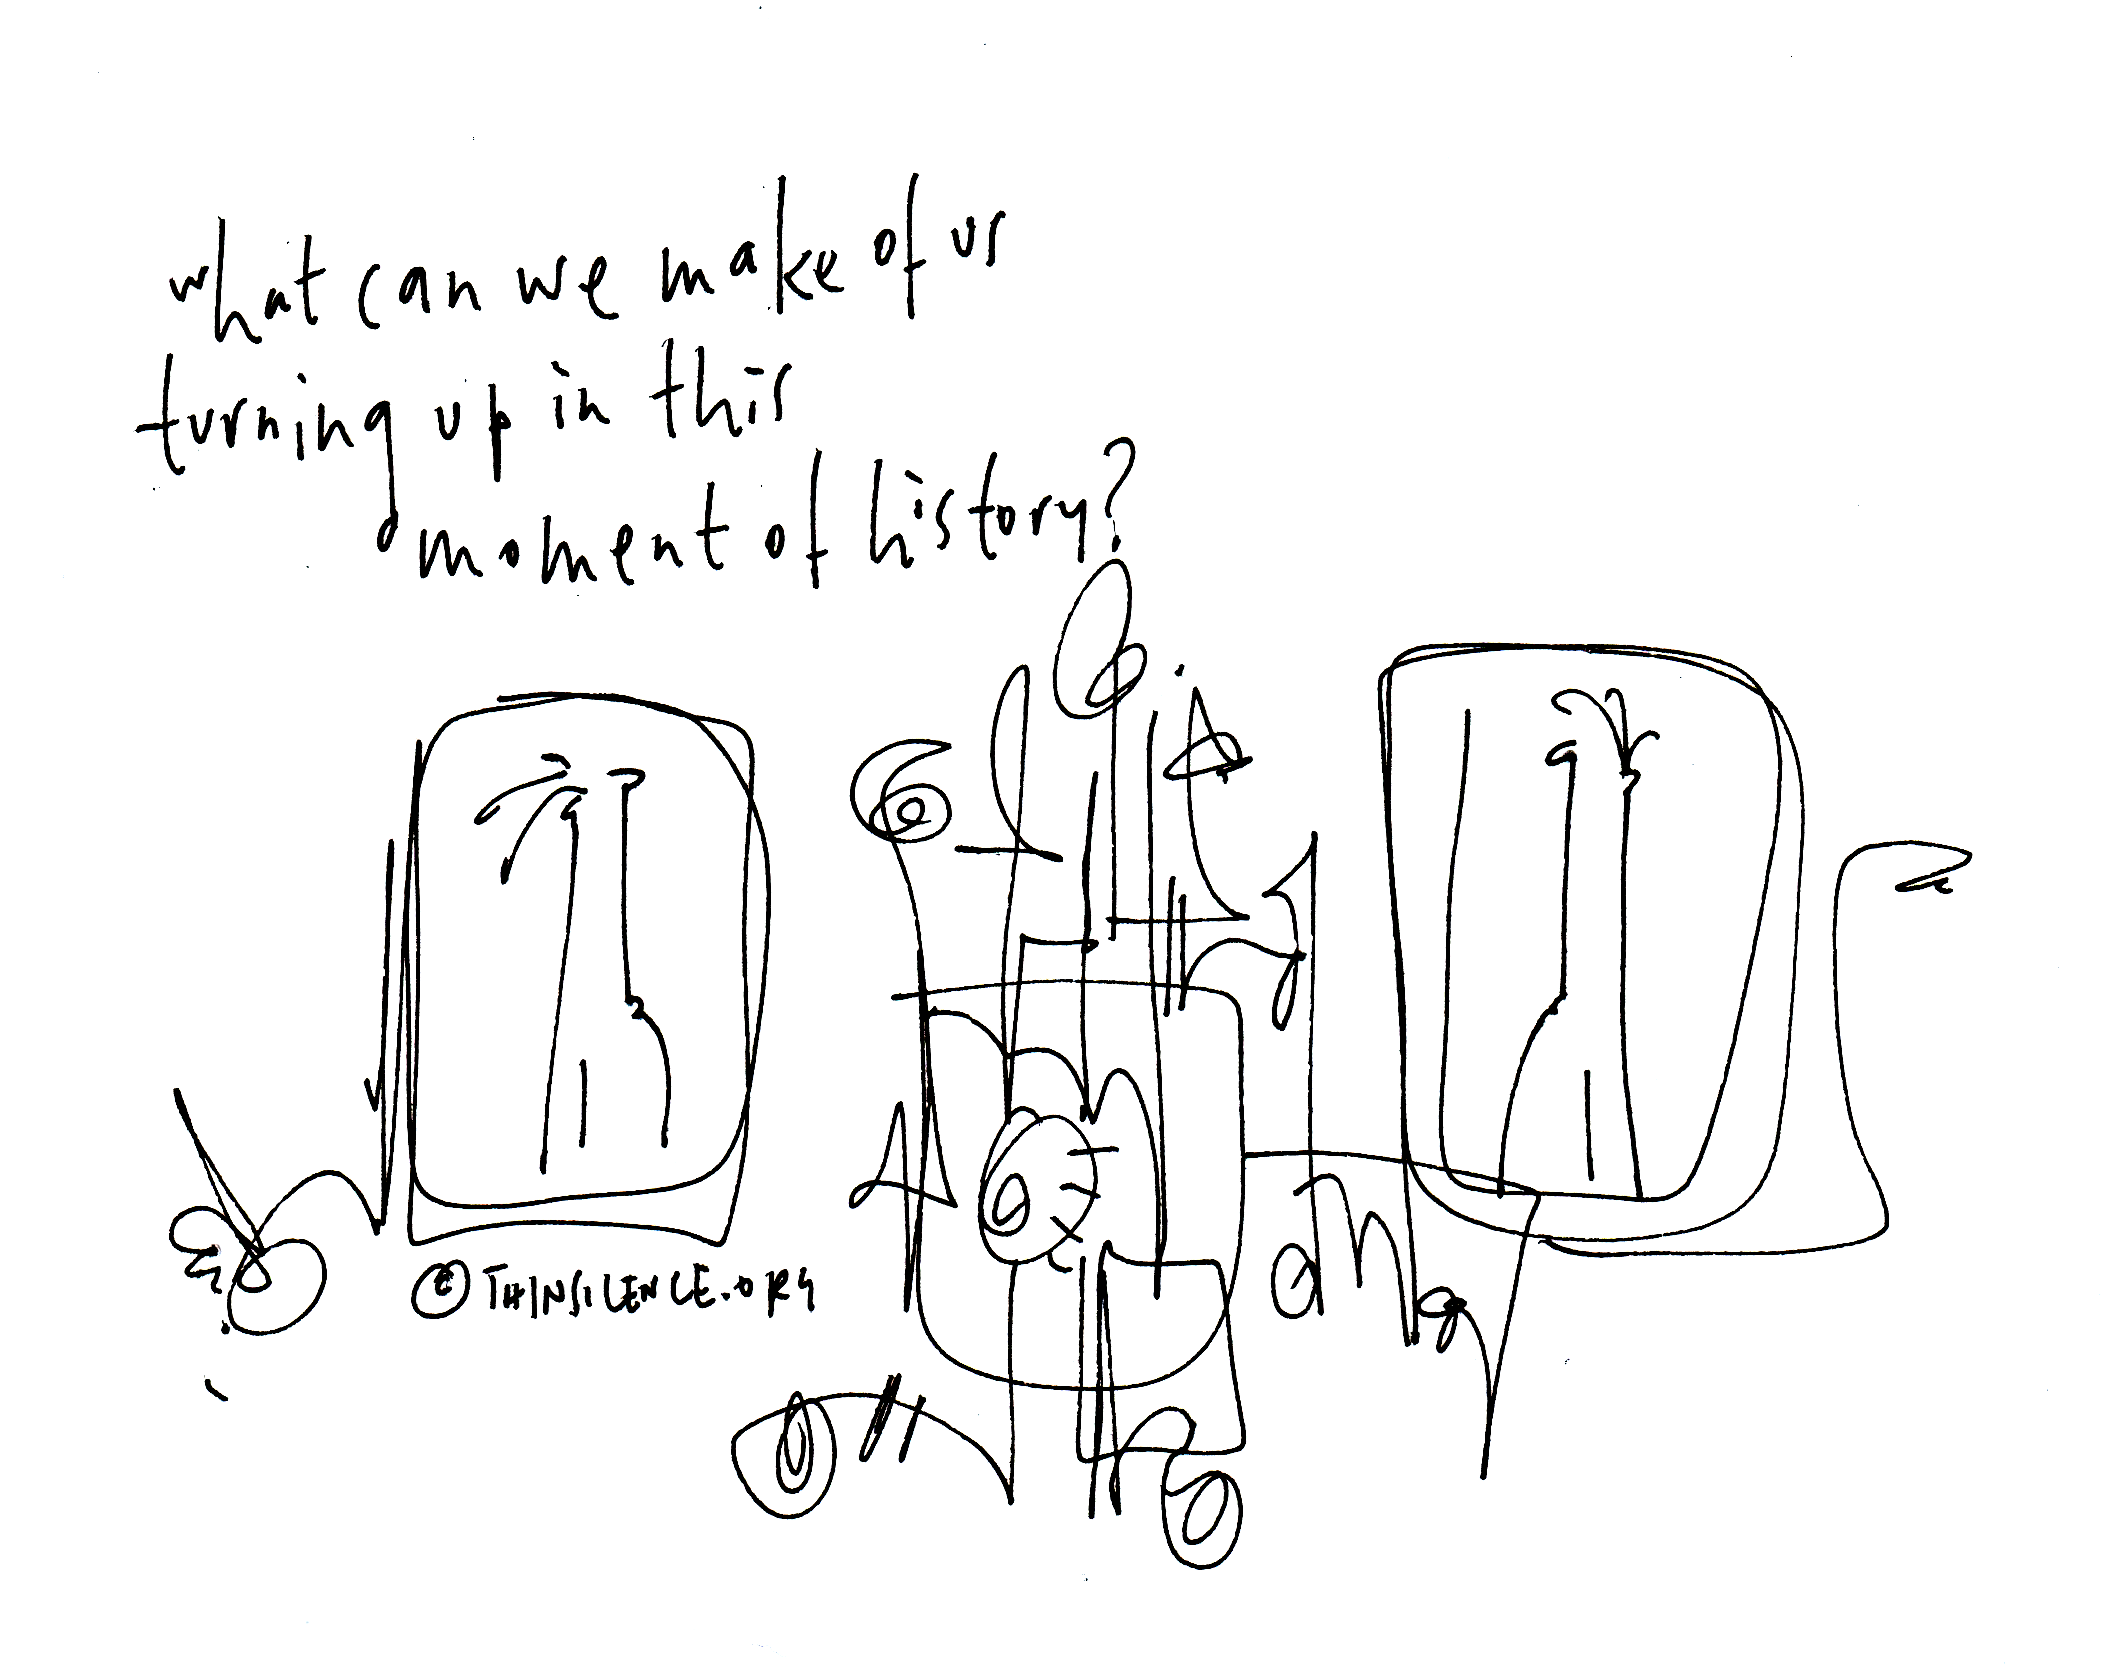 what can we make of us
turning up in this
moment of history?
© THINSILENCE.ORG